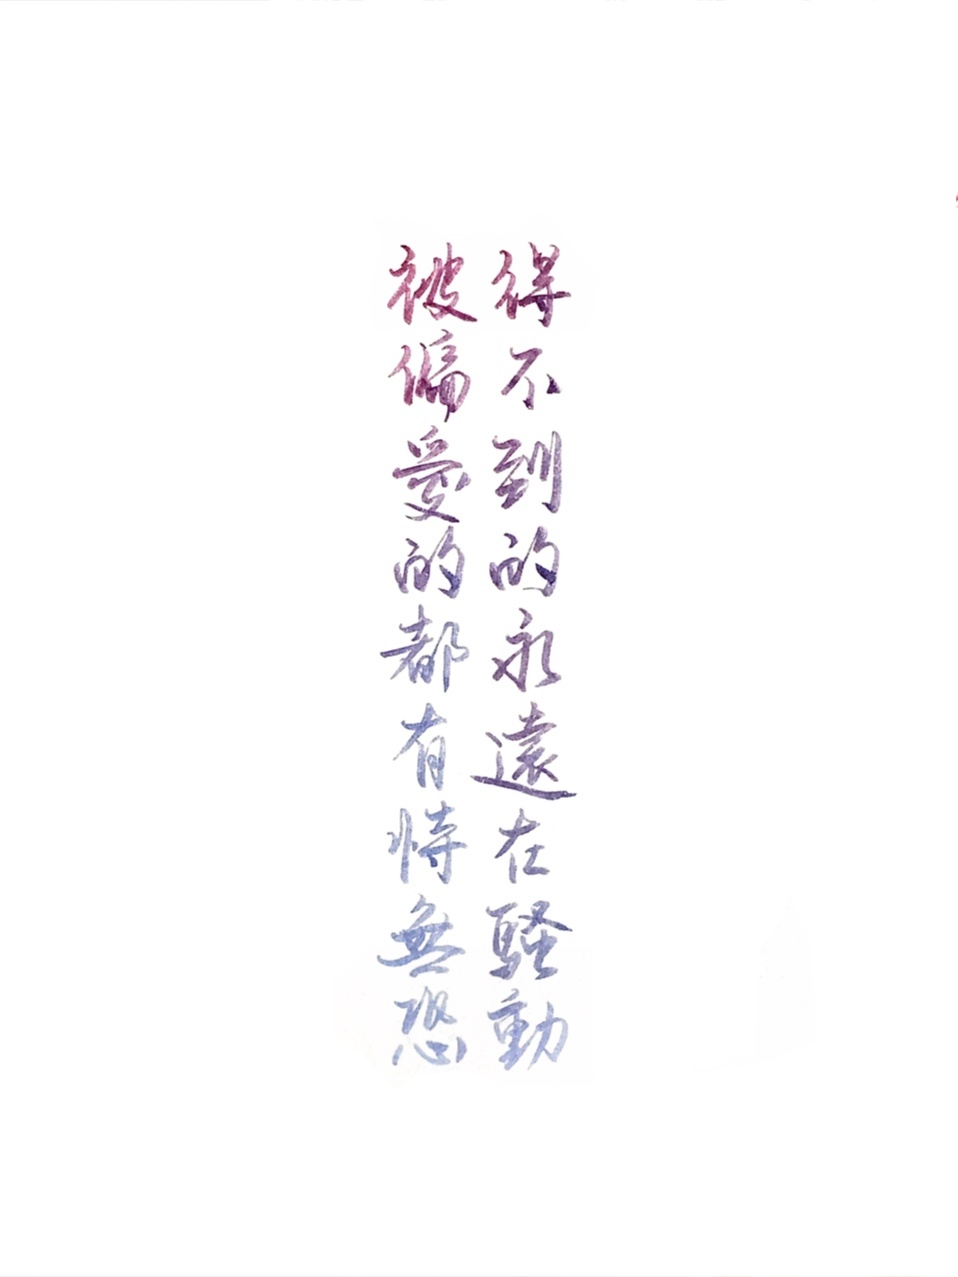 得不到的永遠在騷動
被偏愛的都有恃無恐